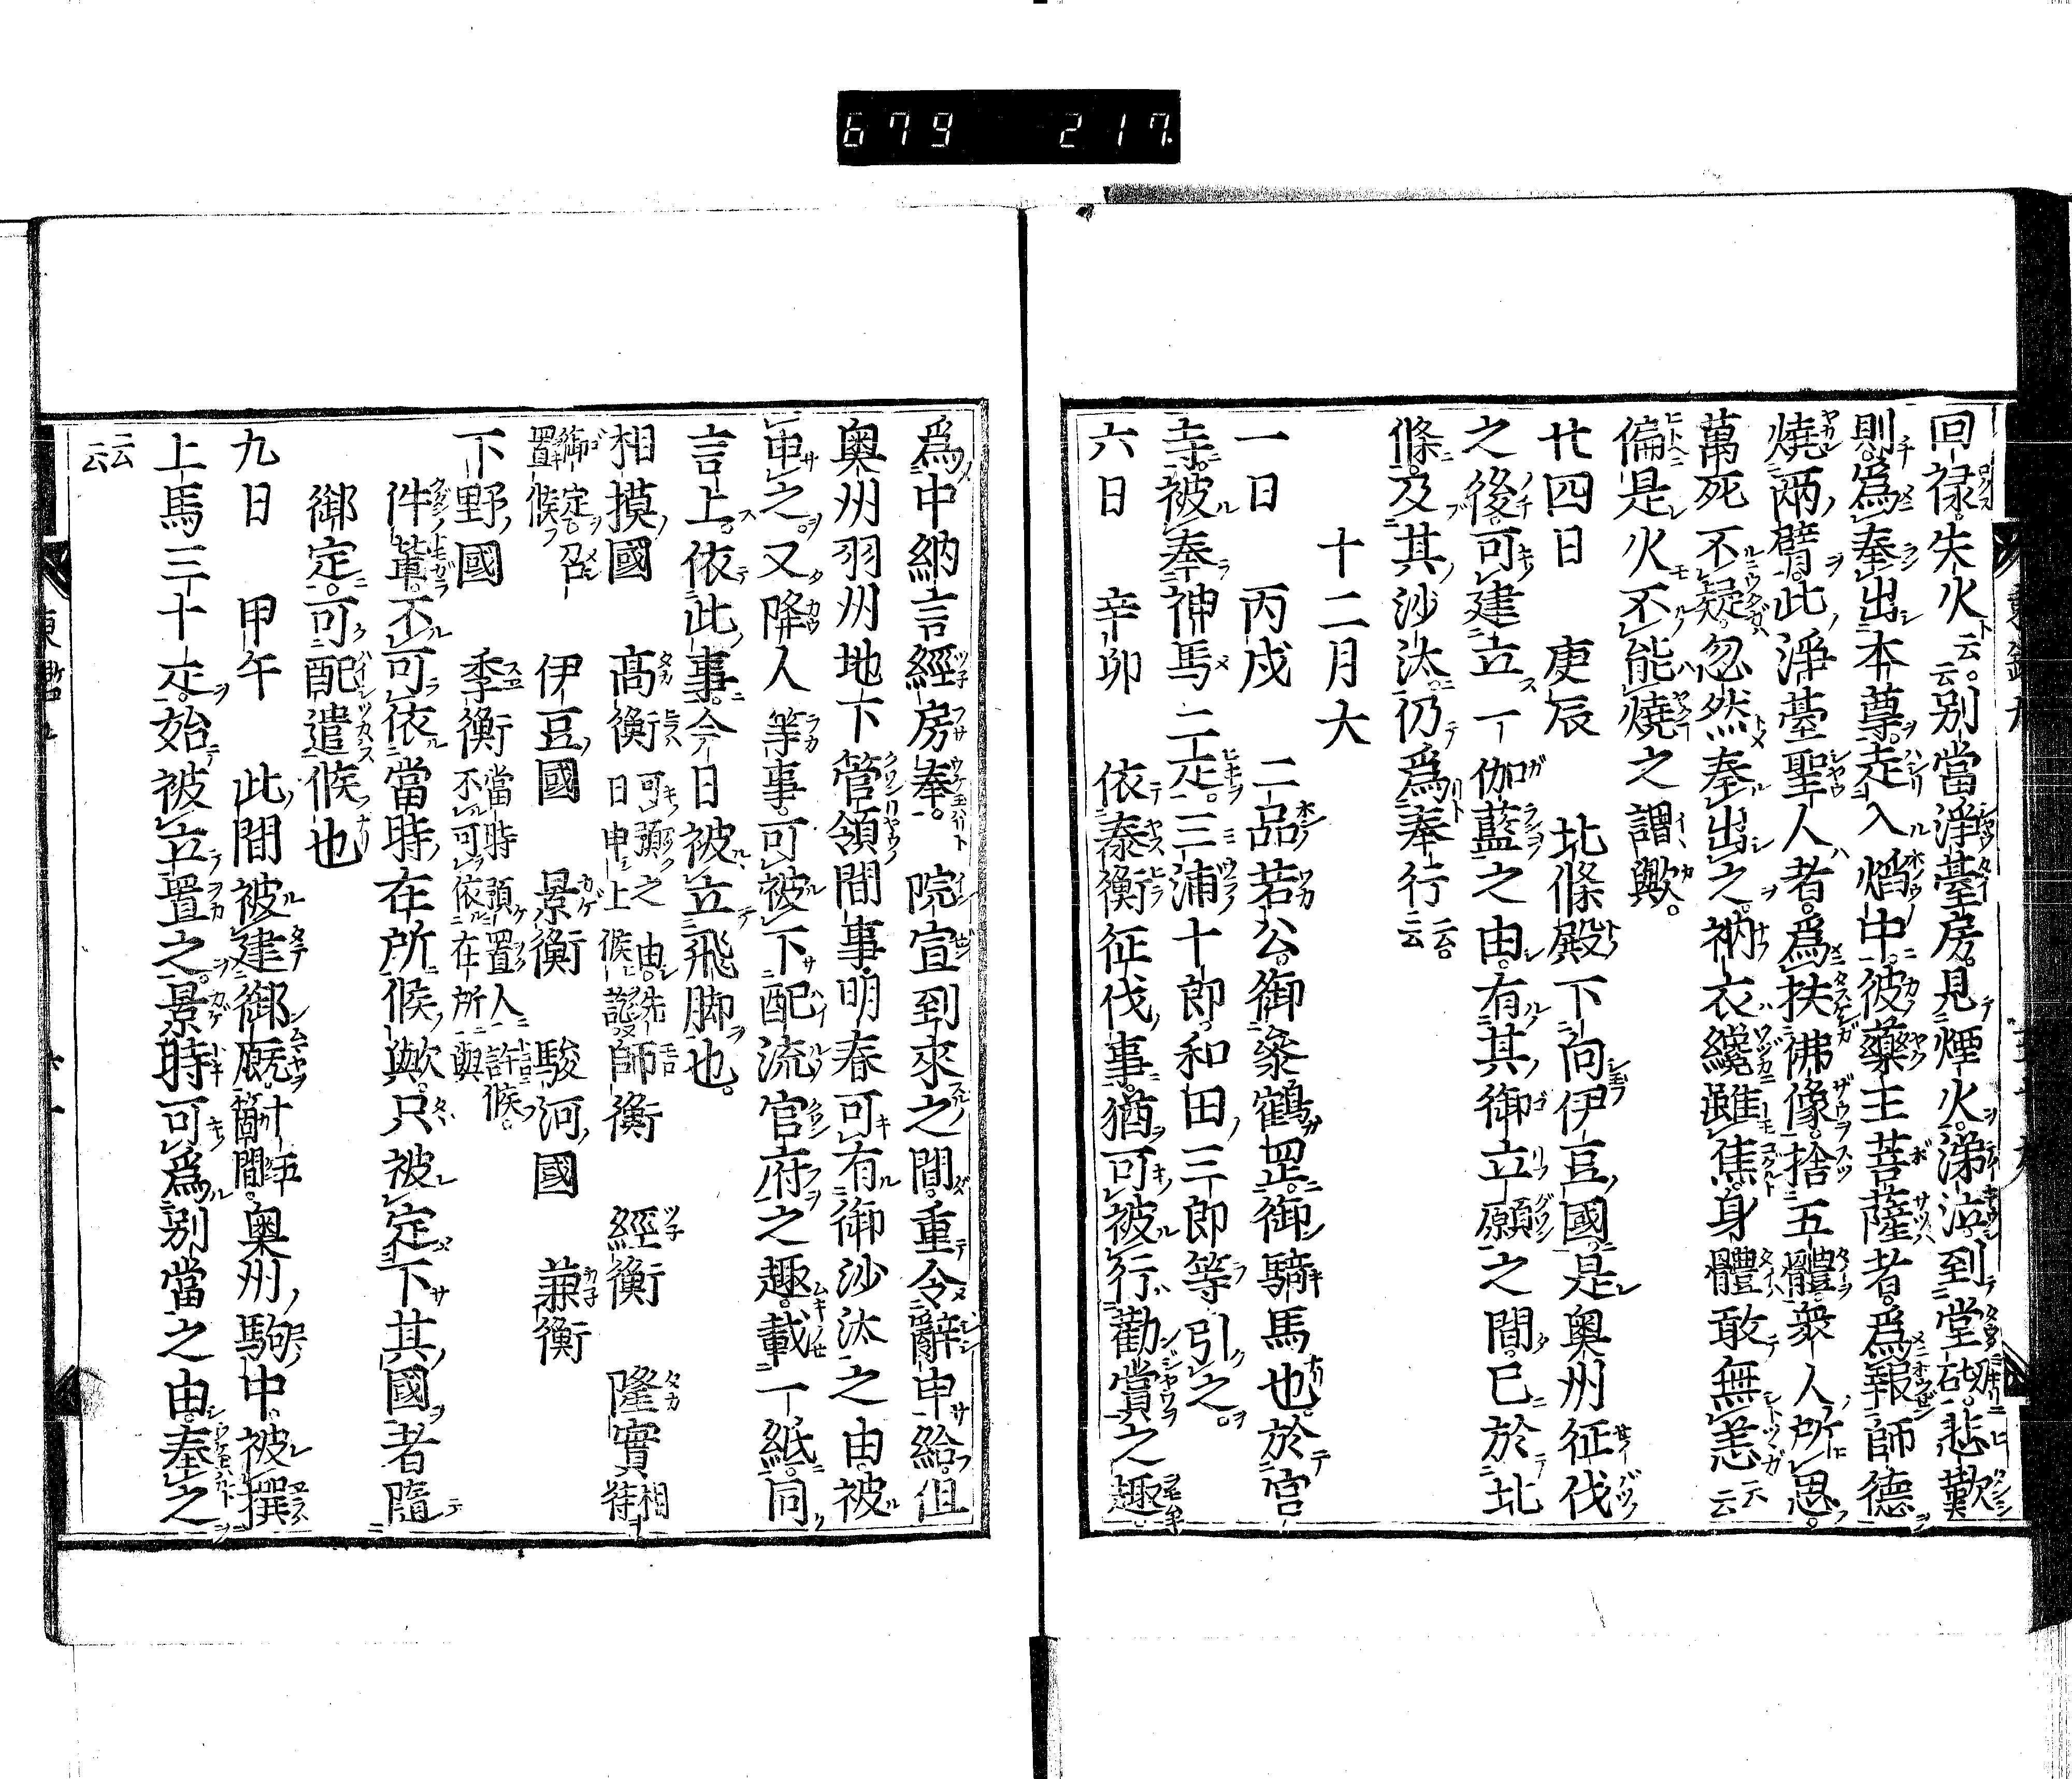 679 217
回禄失火云云。別當淨臺房。見煙火。涕泣到堂砌。悲歎
則爲奉出本尊。走入焰中。彼藥王菩薩者。爲報師德
燒兩臂。此淨臺聖人者。爲扶佛像。捨五體。衆人所思。
萬死不疑。忽然奉出之。衲衣纔雖焦。身體敢無恙云云
偏是火不能燒之謂歟。
廿四日 庚辰 北條殿下向伊豆國。是奥州征伐
之後。可建立一伽藍之由。有其御立願之間。已於北
條。及其沙汰。仍爲奉行云云。
十二月大
一日 丙戌 二品若公。御參鶴罡。御騎馬也。於宮
寺。被奉神馬二疋。三浦十郎和田三郎等引之。
六日 辛卯 依泰衡征伐事。猶可被行勸賞之趣。
爲中納言經房奉。 院宣到來之間。重令辭申給。但
奥州羽州地下管領間事。明春可有御沙汰之由。被
申之。又降人等事。可被下配流官府之趣。載一紙。同
言上。依此事。今日被立飛脚也。
相摸國 高衡可預之由。先日申上候訖師衡 經衡 隆實相待
御定召置候 伊豆國 景衡 駿河國 兼衡
下野國 季衡當時預置人許候。不可依在所與
件輩。不可依當時在所候歟。只被定下其國者。隨
御定。可配遣候也
九日 甲午 此間被建御厩。十五箇間。奥州駒中。被撰
上馬三十疋。始被立置之。景時可爲別當之由。奉之
云云